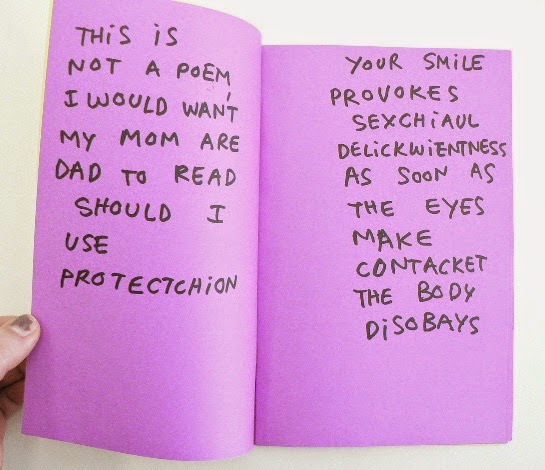 THiS iS
NOT A POEM,
I WOULD WANT
MY MOM ARE
DAD TO READ
SHOULD I
USE
PROTECTCHiON
YOUR SMILE
PROVOKES
SEXCHiAUL
DELiCKWiENTNESS
AS SOON AS
THE EYES
MAKE
CONTACKET
THE BODY
DiSOBAYS